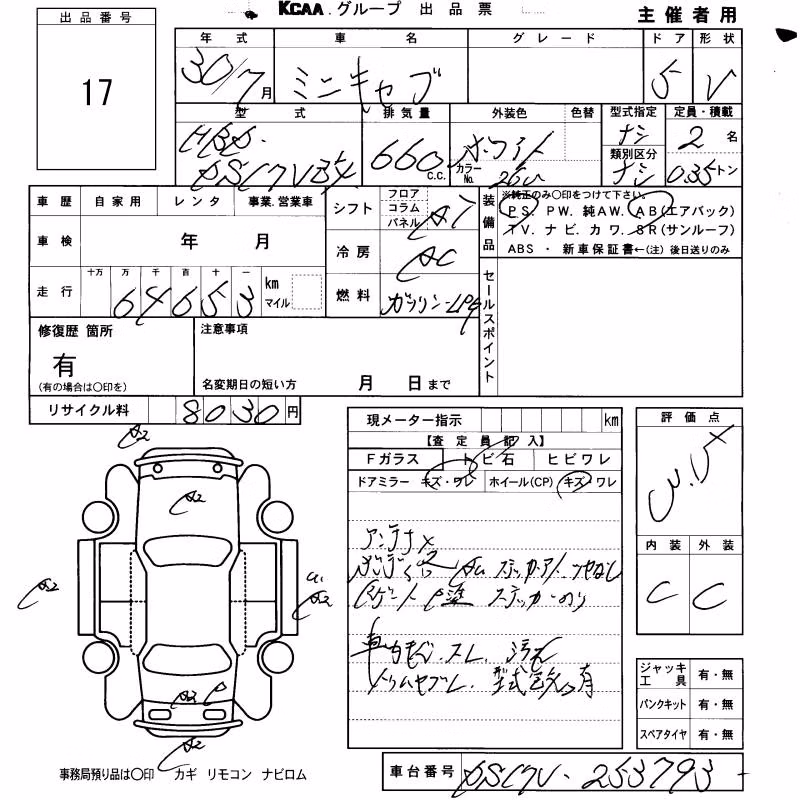 KCAA.グループ 出品票
主催者用
出品番号
17
年式 車名 グレード ドア 形状
30/7月 ミニキャブ 5 V
型式 排気量 外装色 色替 型式指定 定員・積載
HBD- 660 c.c. ホワイト ナシ 2名
DS17V カラーNo. 26U 類別区分 ナシ 0.35トン
車歴 自家用 レンタ 事業.営業車
車検 年 月
走行 十万 万 千 百 十 一 km マイル
64653
シフト フロア コラム パネル AT
冷房 AC
燃料 ガソリン・LPG
装備品 ※純正のみ〇印をつけて下さい。
PS. PW. 純AW. AB(エアバック)
TV. ナビ. カワ. SR(サンルーフ)
ABS ・ 新車保証書←(注) 後日送りのみ
セールスポイント
修復歴 箇所
有
(有の場合は〇印を)
注意事項
名変期日の短い方 月 日まで
リサイクル料 8030円
現メーター指示 km
【査定員記入】
Fガラス トビ石 ヒビワレ
ドアミラー キズ・ワレ ホイール(CP) キズ ワレ
アンテナ×
ステッカーアト ツヤなし
ステッカーのり
スレ. 汚れ
有
評価点
内装 外装
C C
ジャッキ工具 有・無
パンクキット 有・無
スペアタイヤ 有・無
A2
A2
A2
A2
A2 P
A2
事務局預り品は〇印 カギ リモコン ナビロム
車台番号 DS17V-253793